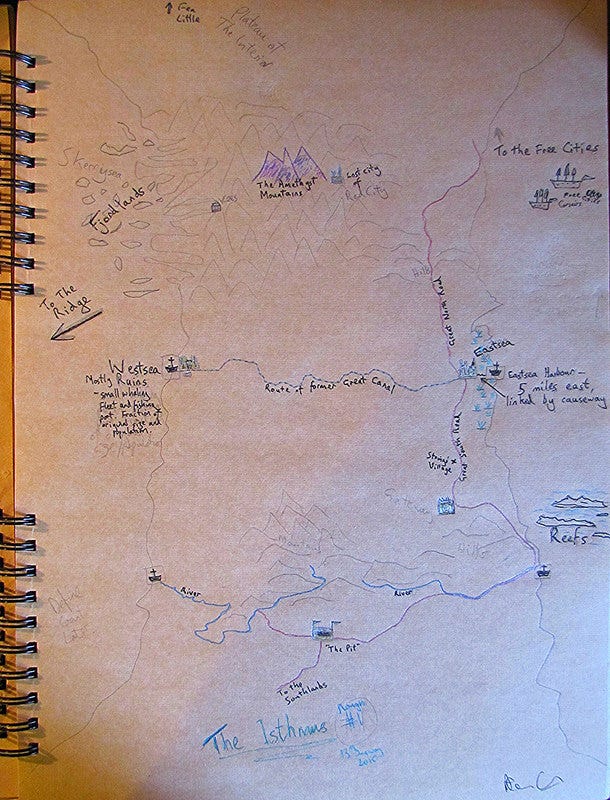 Fen
Little
Plateau of
The Interior
To the Free Cities
Free
Corsairs
Skerrysea
Fjordlands
The Amethyst
Mountains
Lost city
of
Red City
To The
Ridge
Hills
Great North Road
Westsea
Mostly Ruins
- small whaling
fleet and fishing
port. Fraction of
original size and
population.
Route of former Great Canal
Eastsea
Eastsea Harbour -
5 miles east,
linked by causeway
Great South Road
Village
Reefs
Hills
River
River
"The Pit"
To the
Southlands
The Isthmus
Rough
#1